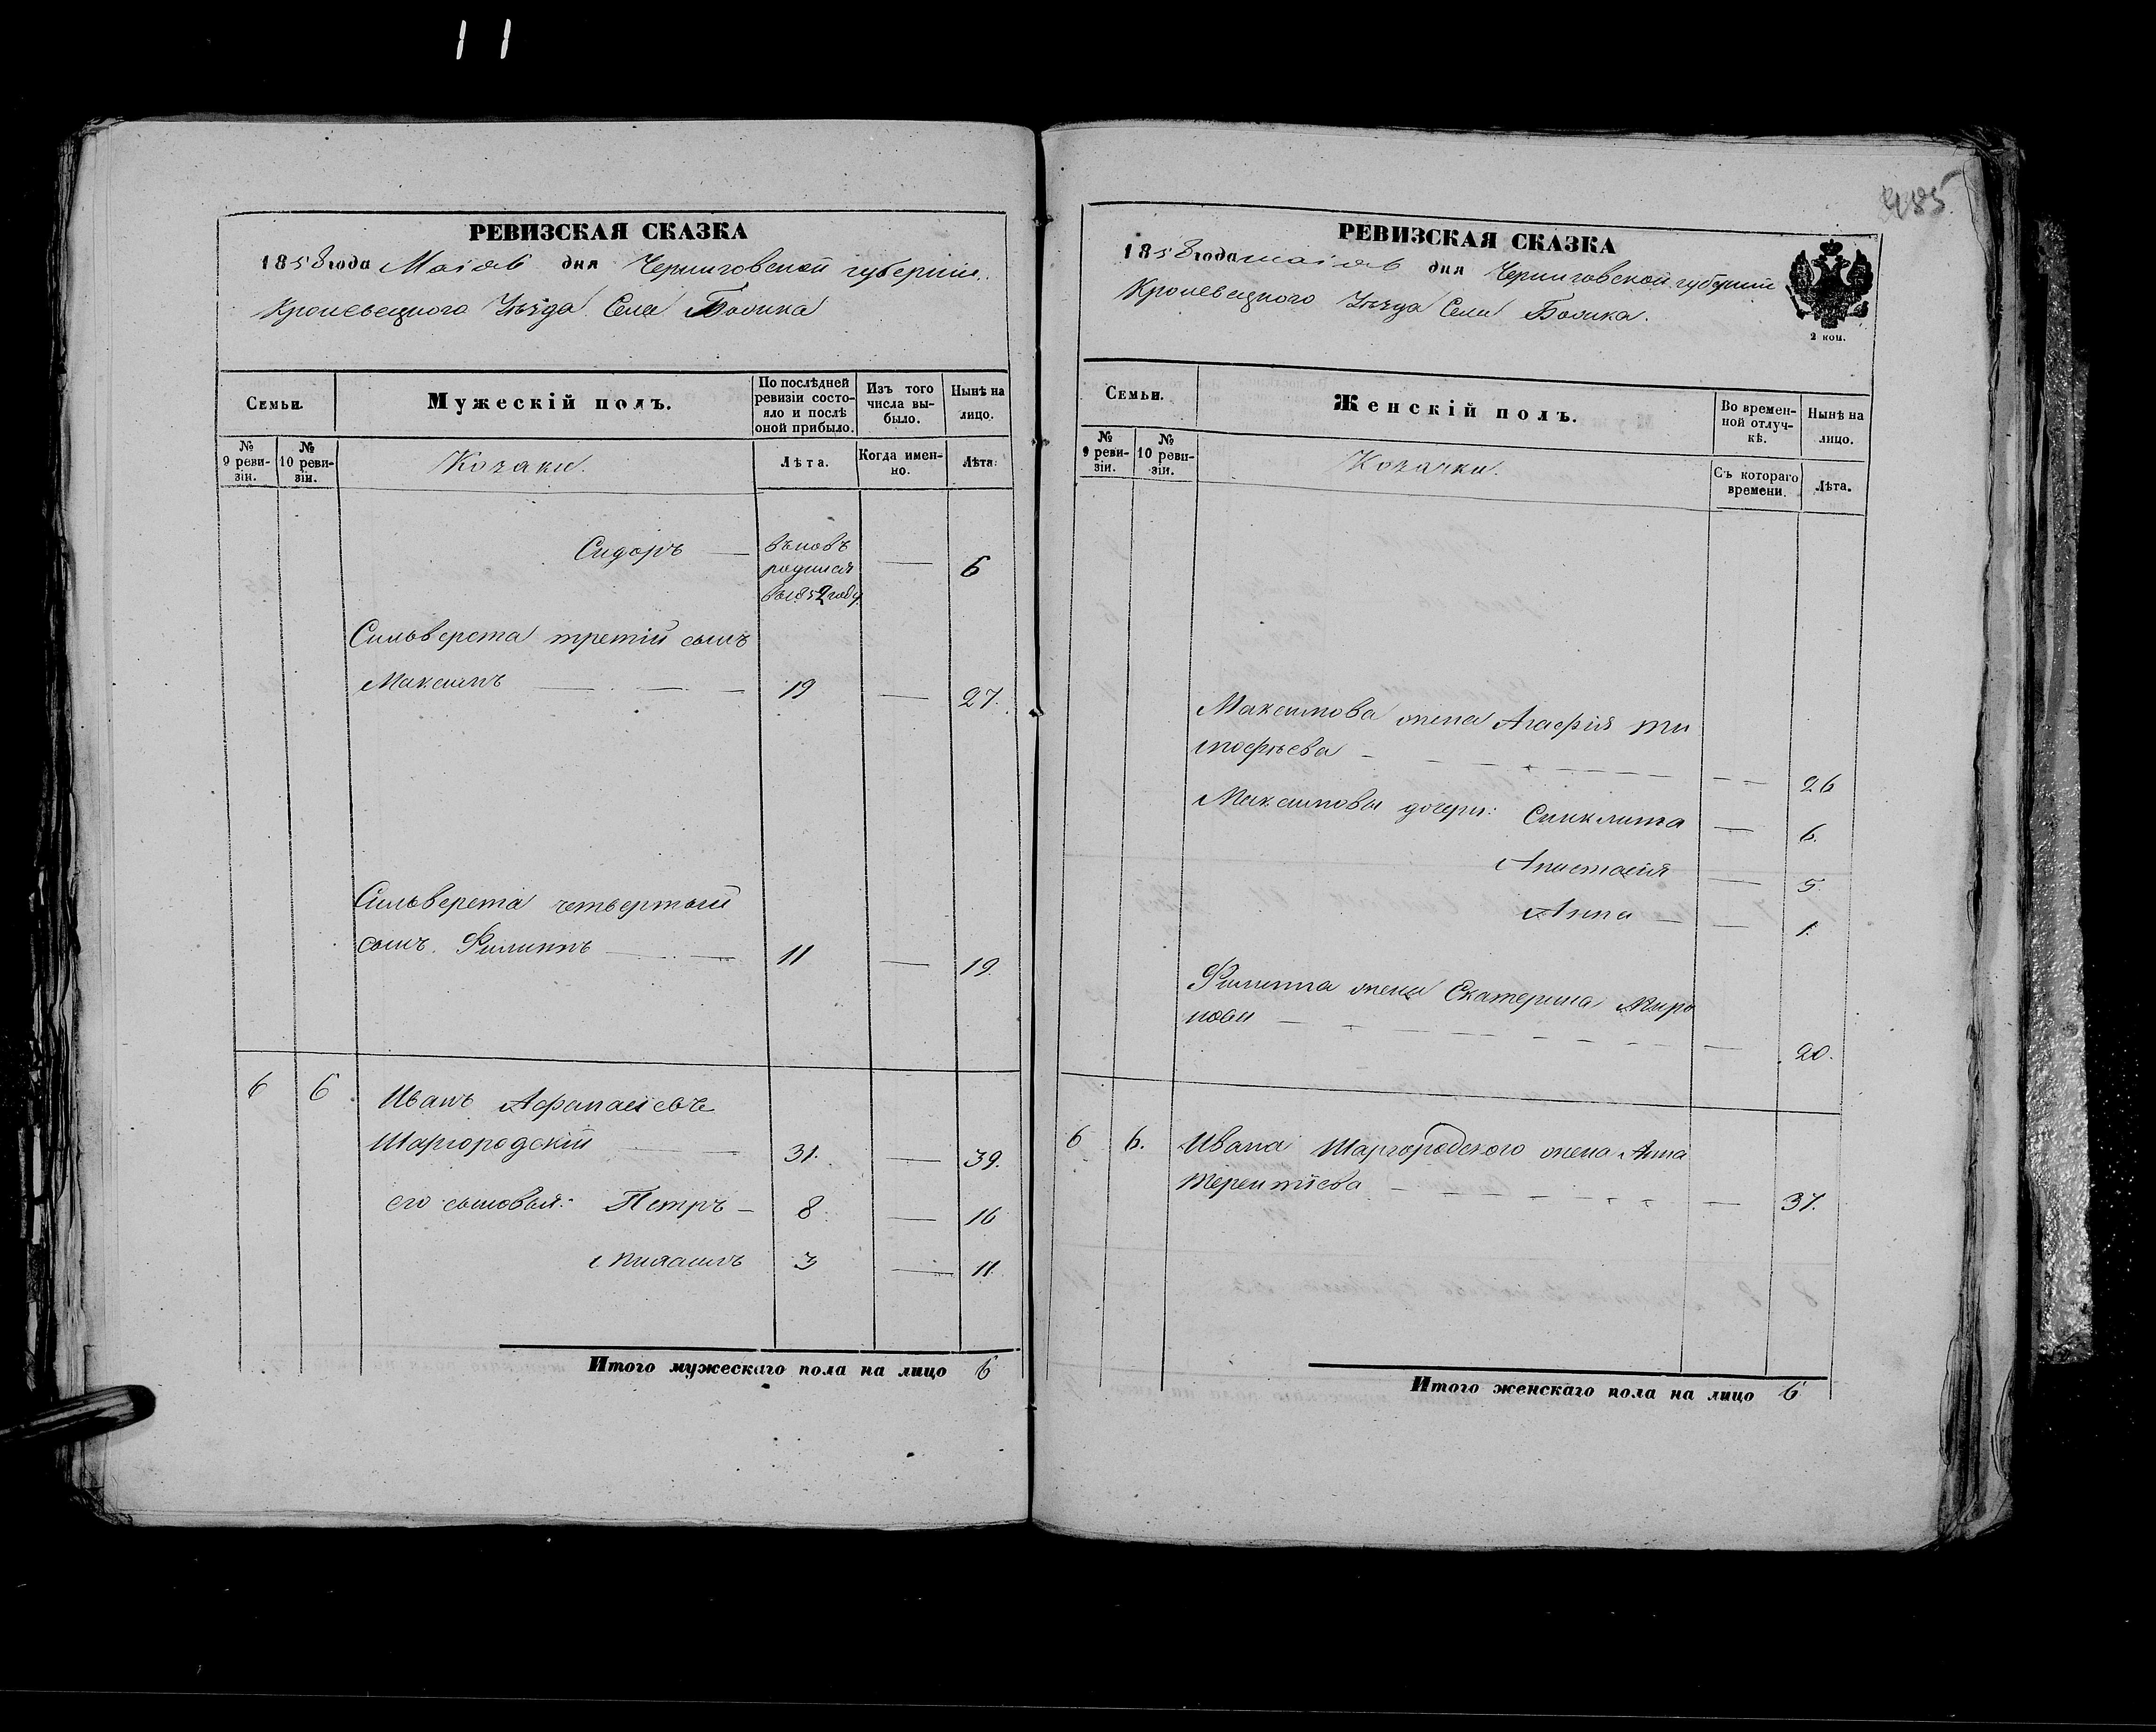 11
РЕВИЗСКАЯ СКАЗКА
1858 года Маія дня Черниговской губерніи
Кролевецкого Уѣзда Села
Семьи.
Мужескій полъ.
По послѣдней ревизіи состояло и послѣ оной прибыло.
Изъ того числа выбыло.
Нынѣ на лицо.
№ 9 ревизіи.
№ 10 ревизіи.
Козаки.
Лѣта.
Когда именно.
Лѣта.
Сидоръ — вновь родился в 1852 году — 6
Сильверста третій сынъ
Максимъ — 19 — 27.
Сильверста четвертый
сынъ Филиппъ — 11 — 19.
6 6 Иванъ Афанасіевъ
Шаргородскій — 31. — 39.
его сыновья: Петръ — 8 — 16
3 — 11.
Итого мужескаго пола на лицо 6
485
РЕВИЗСКАЯ СКАЗКА
1858 года маія дня Черниговской губерніи
Кролевецкого Уѣзда Села
2 коп.
Семьи.
Женскій полъ.
Во временной отлучкѣ.
Нынѣ на лицо.
№ 9 ревизіи.
№ 10 ревизіи.
Козачки.
Съ котораго времени.
Лѣта.
Максимова жена Агафія Ти
мофѣева — — 26
Максимовы дочери: Синклита — 6.
Анастасія — 5.
Анна — — 1.
Филиппа жена Екатерина Миро
нова — — 20.
6 6. Ивана Шаргородского жена Анна
Терентіева — — 37.
Итого женскаго пола на лицо 6